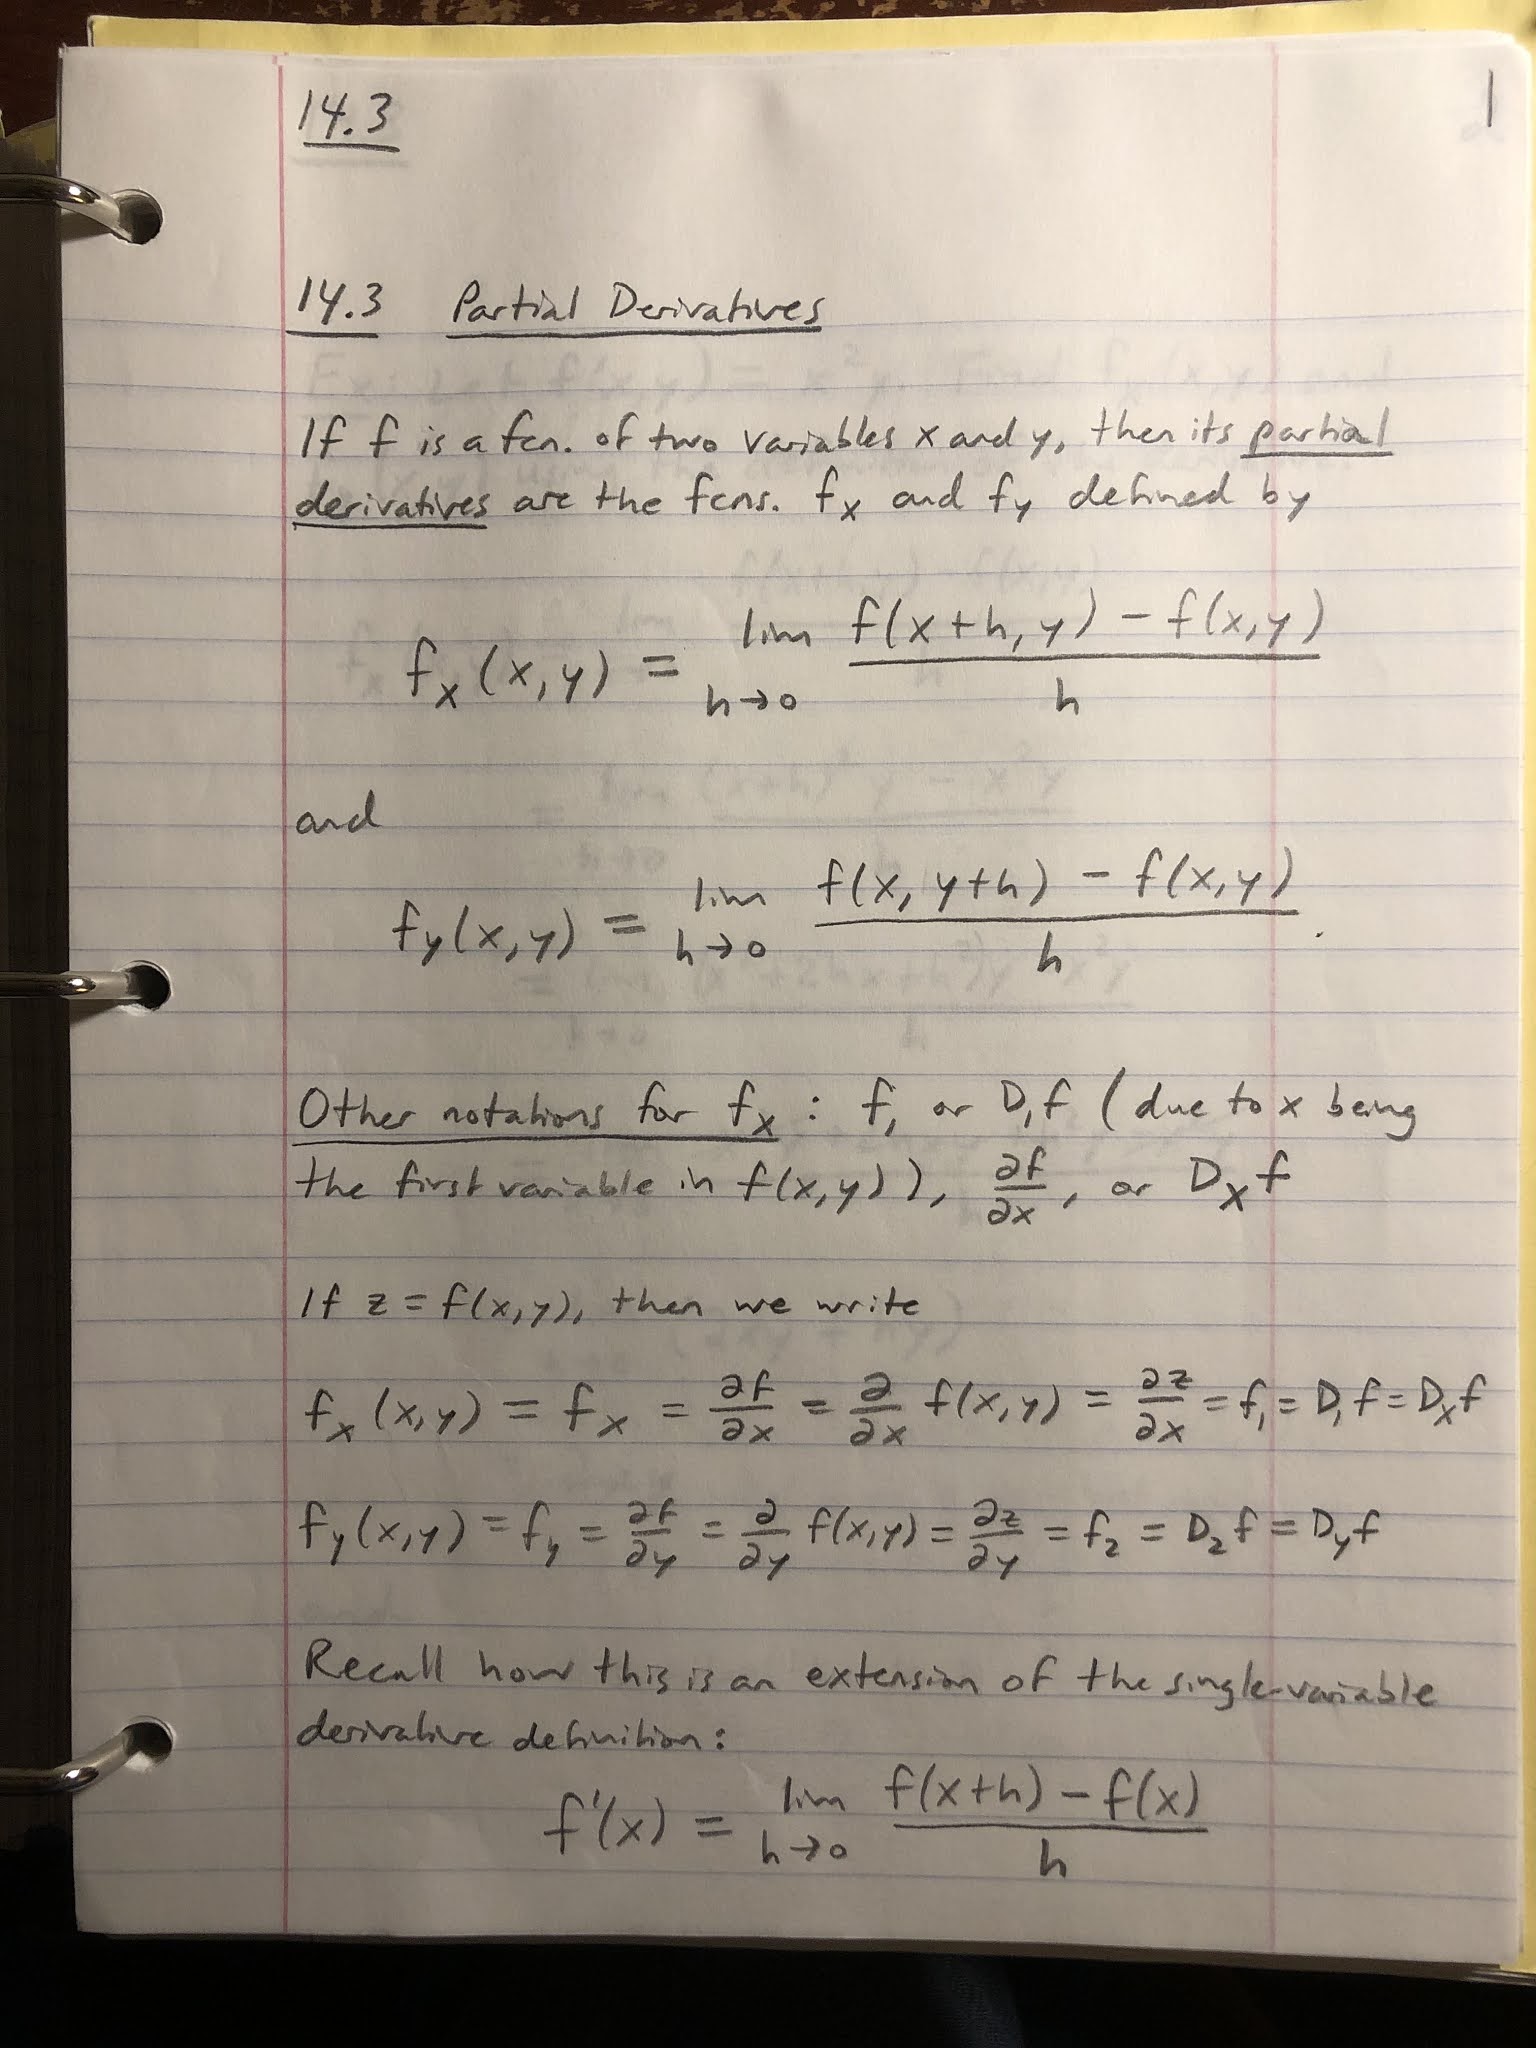 14.3 1
14.3 Partial Derivatives
If f is a fcn. of two variables x and y, then its partial
derivatives are the fcns. fₓ and f_y defined by
fₓ(x,y) = lim_{h→0} (f(x+h,y) - f(x,y))/h
and
f_y(x,y) = lim_{h→0} (f(x,y+h) - f(x,y))/h.
Other notations for fₓ: f₁ or D₁f (due to x being
the first variable in f(x,y)), ∂f/∂x, or Dₓf
If z = f(x,y), then we write
fₓ(x,y) = fₓ = ∂f/∂x = ∂/∂x f(x,y) = ∂z/∂x = f₁ = D₁f = Dₓf
f_y(x,y) = f_y = ∂f/∂y = ∂/∂y f(x,y) = ∂z/∂y = f₂ = D₂f = D_yf
Recall how this is an extension of the single-variable
derivative definition:
f'(x) = lim_{h→0} (f(x+h) - f(x))/h